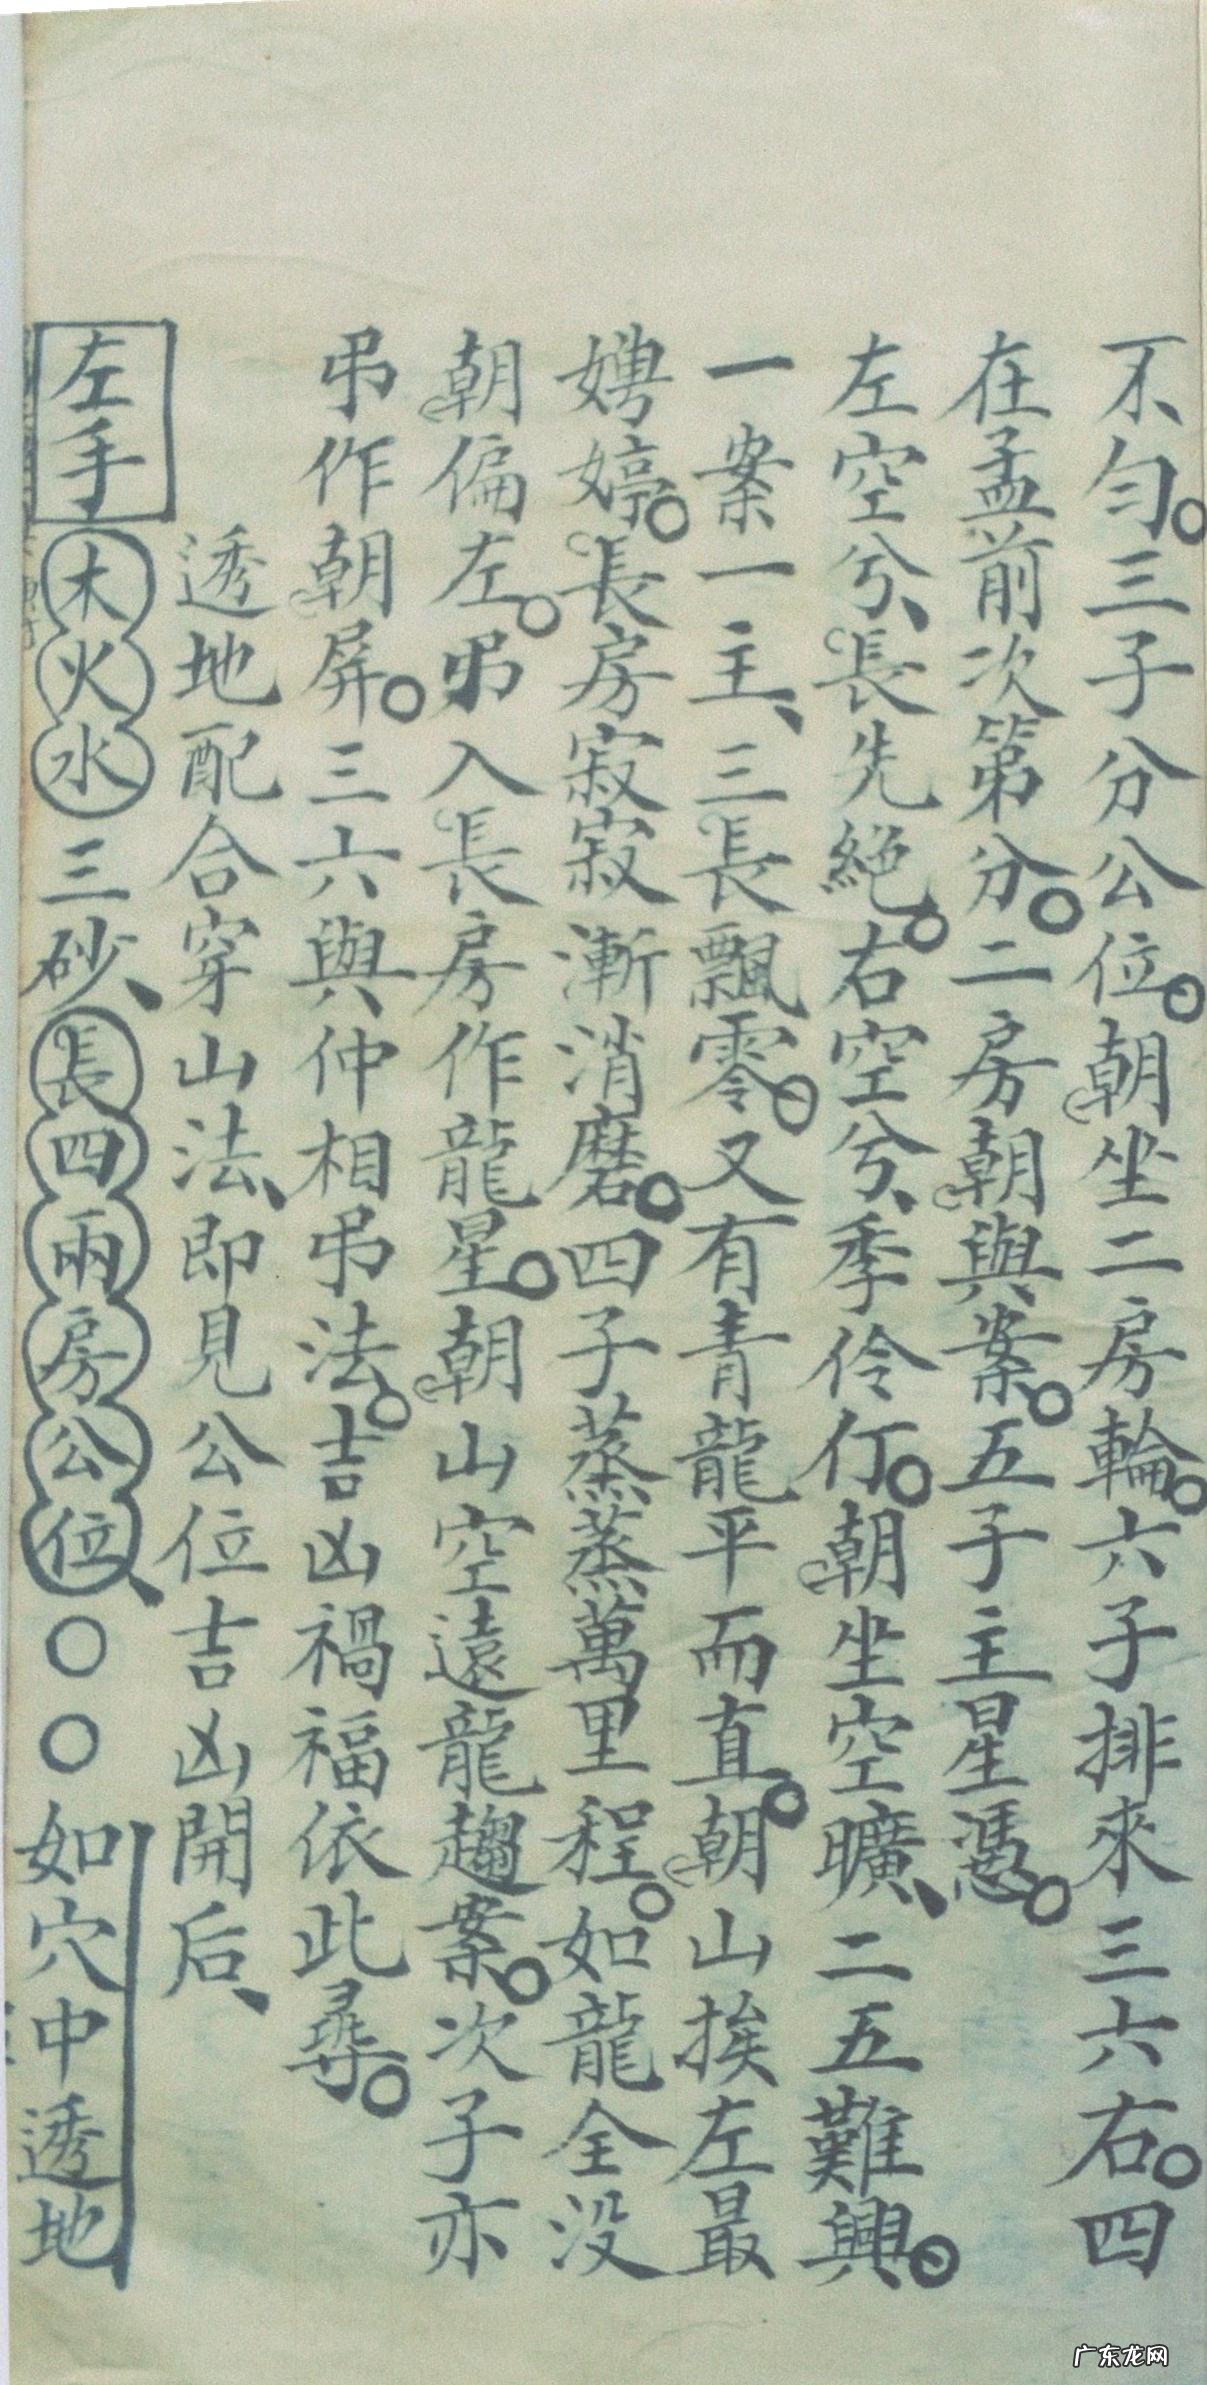 不勻。三子分公位。朝坐二房輪。六子排來三六右。四
在孟前次第分。二房朝與案。五子主星憑。
左空兮、長先絕。右空兮、季伶仃。朝坐空曠、二五難興。
一案一主、三長飄零。又有青龍平而直。朝山挨左最
娉婷。長房寂寂漸消磨。四子蒸蒸萬里程。如龍全没
朝偏左。弔入長房作龍星。朝山空遠龍趨案。次子亦
弔作朝屏。三六與仲相弔法。吉凶禍福依此尋。
透地配合穿山法、即見公位吉凶開后、
左手木火水三砂、長四兩房公位、○○如穴中透地
广东龙网